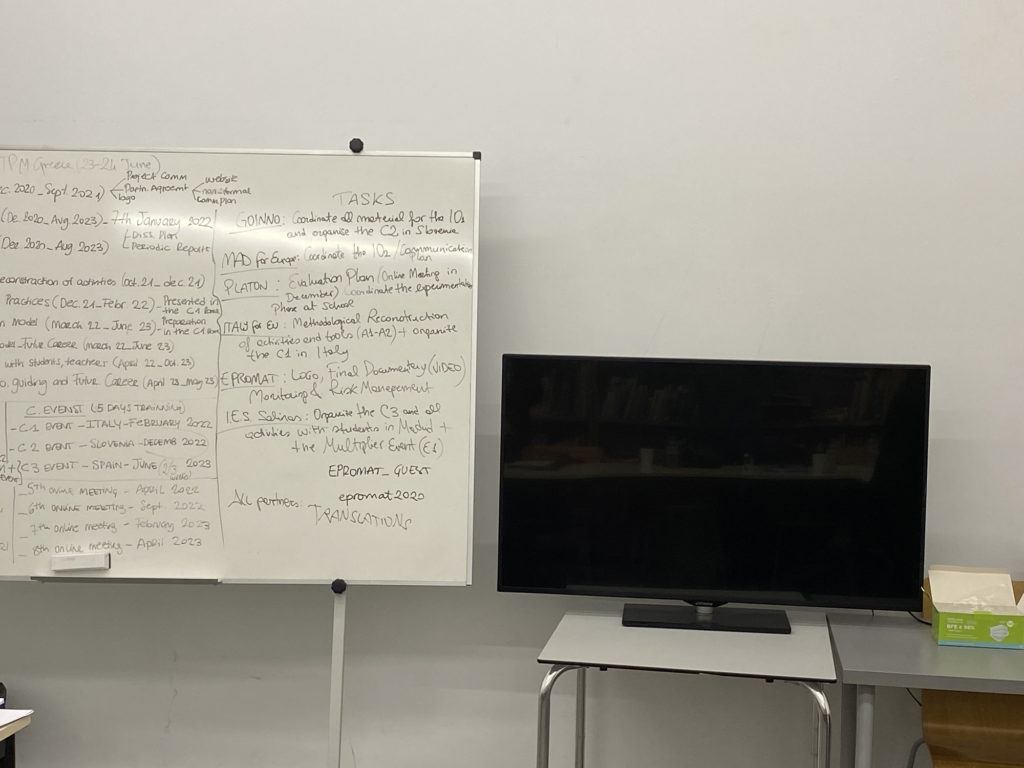 TPM Greece (23-24 June)
2020_Sept. 2021)
Project Comm
Partn. Agreemt
logo
website
non-formal
Comm plan
(De. 2020_Aug. 2023)_7th January 2022
Diss. Plan
Periodic Reports
(Dez 2020_Aug. 2023)
econstruction of activities (oct. 21_dec. 21)
Practices (Dec. 21_Febr. 22)_Presented in
the C1
n Model (March 22_June 23)_Preparation
in the C1
Future Career (march 22_June 23)
with students, teachers (April 22_Oct. 23)
o. guiding and Future Career (April 23_may 23)
C. EVENST (5 DAYS TRAINNING)
-C1 EVENT - ITALY-FEBRUARY 2022
-C2 EVENT - SLOVENIA-DECEMB 2022
C3 EVENT - SPAIN-JUNE 2023
_5th online MEETING - APRIL 2022
_6th ONLINE MEETING - Sept. 2022
_7th online meeting - February 2023
_8th online meeting - April 2023
TASKS
GOINNO: Coordinate all material for the IO1
and organise the C2 in Slovenia
MAD for Europe: Coordinate the IO2/Communication
plan
PLATON: Evaluation Plan/Online Meeting in
December) Coordinate the experimentation
Phase at School
ITALY for EU: Methodological Reconstruction
of activities and tools (A1-A2) + organise
the C1 in Italy
EPROMAT: LOGO, Final Documentary (VIDEO)
Monitoring & Risk Management
I.E.S Salinas: Organise the C3 and all
activities with students in Madrid +
the Multiplier Event (E1)
EPROMAT_GUEST
epromat2020
ALL partners:
TRANSLATIONS
BFE ≥ 98%